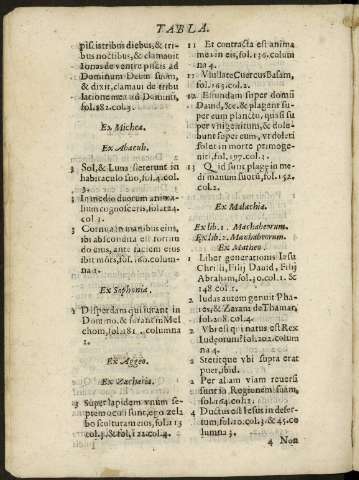 TABLA.
piscis tribus diebus, & tri-
bus noctibus, & clamauit
Ionas de ventre piscis ad
Dominum Deum suum,
& dixit, clamaui de tribu
latione mea ad Dominũ,
fol.182.col.3.
Ex Michea.
Ex Abacuh.
3 Sol, & Luna steterunt in
habitaculo suo, fol.4.col.
3.
3 In medio duorum anima-
lium cognosceris, fol.124.
col.3.
3 Cornua in manibus eius,
ibi abscondita est fortitu
do eius, ante faciem eius
ibit mors, fol.160.colum-
na 1.
Ex Sophonia.
Disperdam qui iurant in
Domino, & iurant in Mel
chom, fol.181. columna
2.
Ex Aggeo.
Ex Zacharia.
3 Super lapidem vnum se-
ptem oculi sunt, ego zela
bo sculturam eius, fol.13
col.3. & fol.122.col.4.
11 Et contracta est anima
mea in eis, fol.136.colum
na 4.
11 Vlullate Cuercus Basam,
fol.163.col.2.
12 Effundam super domũ
Dauid, &c. & plagent su-
per eum planctu, quasi su
per vnigenitum, & dole-
bunt super eum, vt doleri
solet in morte primoge-
niti, fol.197.col.1.
13 Quid sunt plage in me-
di manuum tuarũ, fol.152.
col.2.
Ex Malachia.
Ex lib.1. Machabeorum.
Ex lib.2. Machabeorum.
Ex Matheo.
1 Liber generationis Iesu
Christi, Filij Dauid, Filij
Abraham, fol.30.col.1. &
148.col.1.
2 Iudas autem genuit Pha-
res, & Zaram de Thamar,
fol.218.col.4.
2 Vbi est qui natus est Rex
Iudęorum? fol.202.colum
na 4.
2 Stetitque vbi supra erat
puer, ibid.
2 Per aliam viam reuersi
sunt in Regionem suam,
fol.164.col.1.
4 Ductus est Iesus in deser-
tum, fol.20.col.3. & 45.co
lumna 3.
4 Non